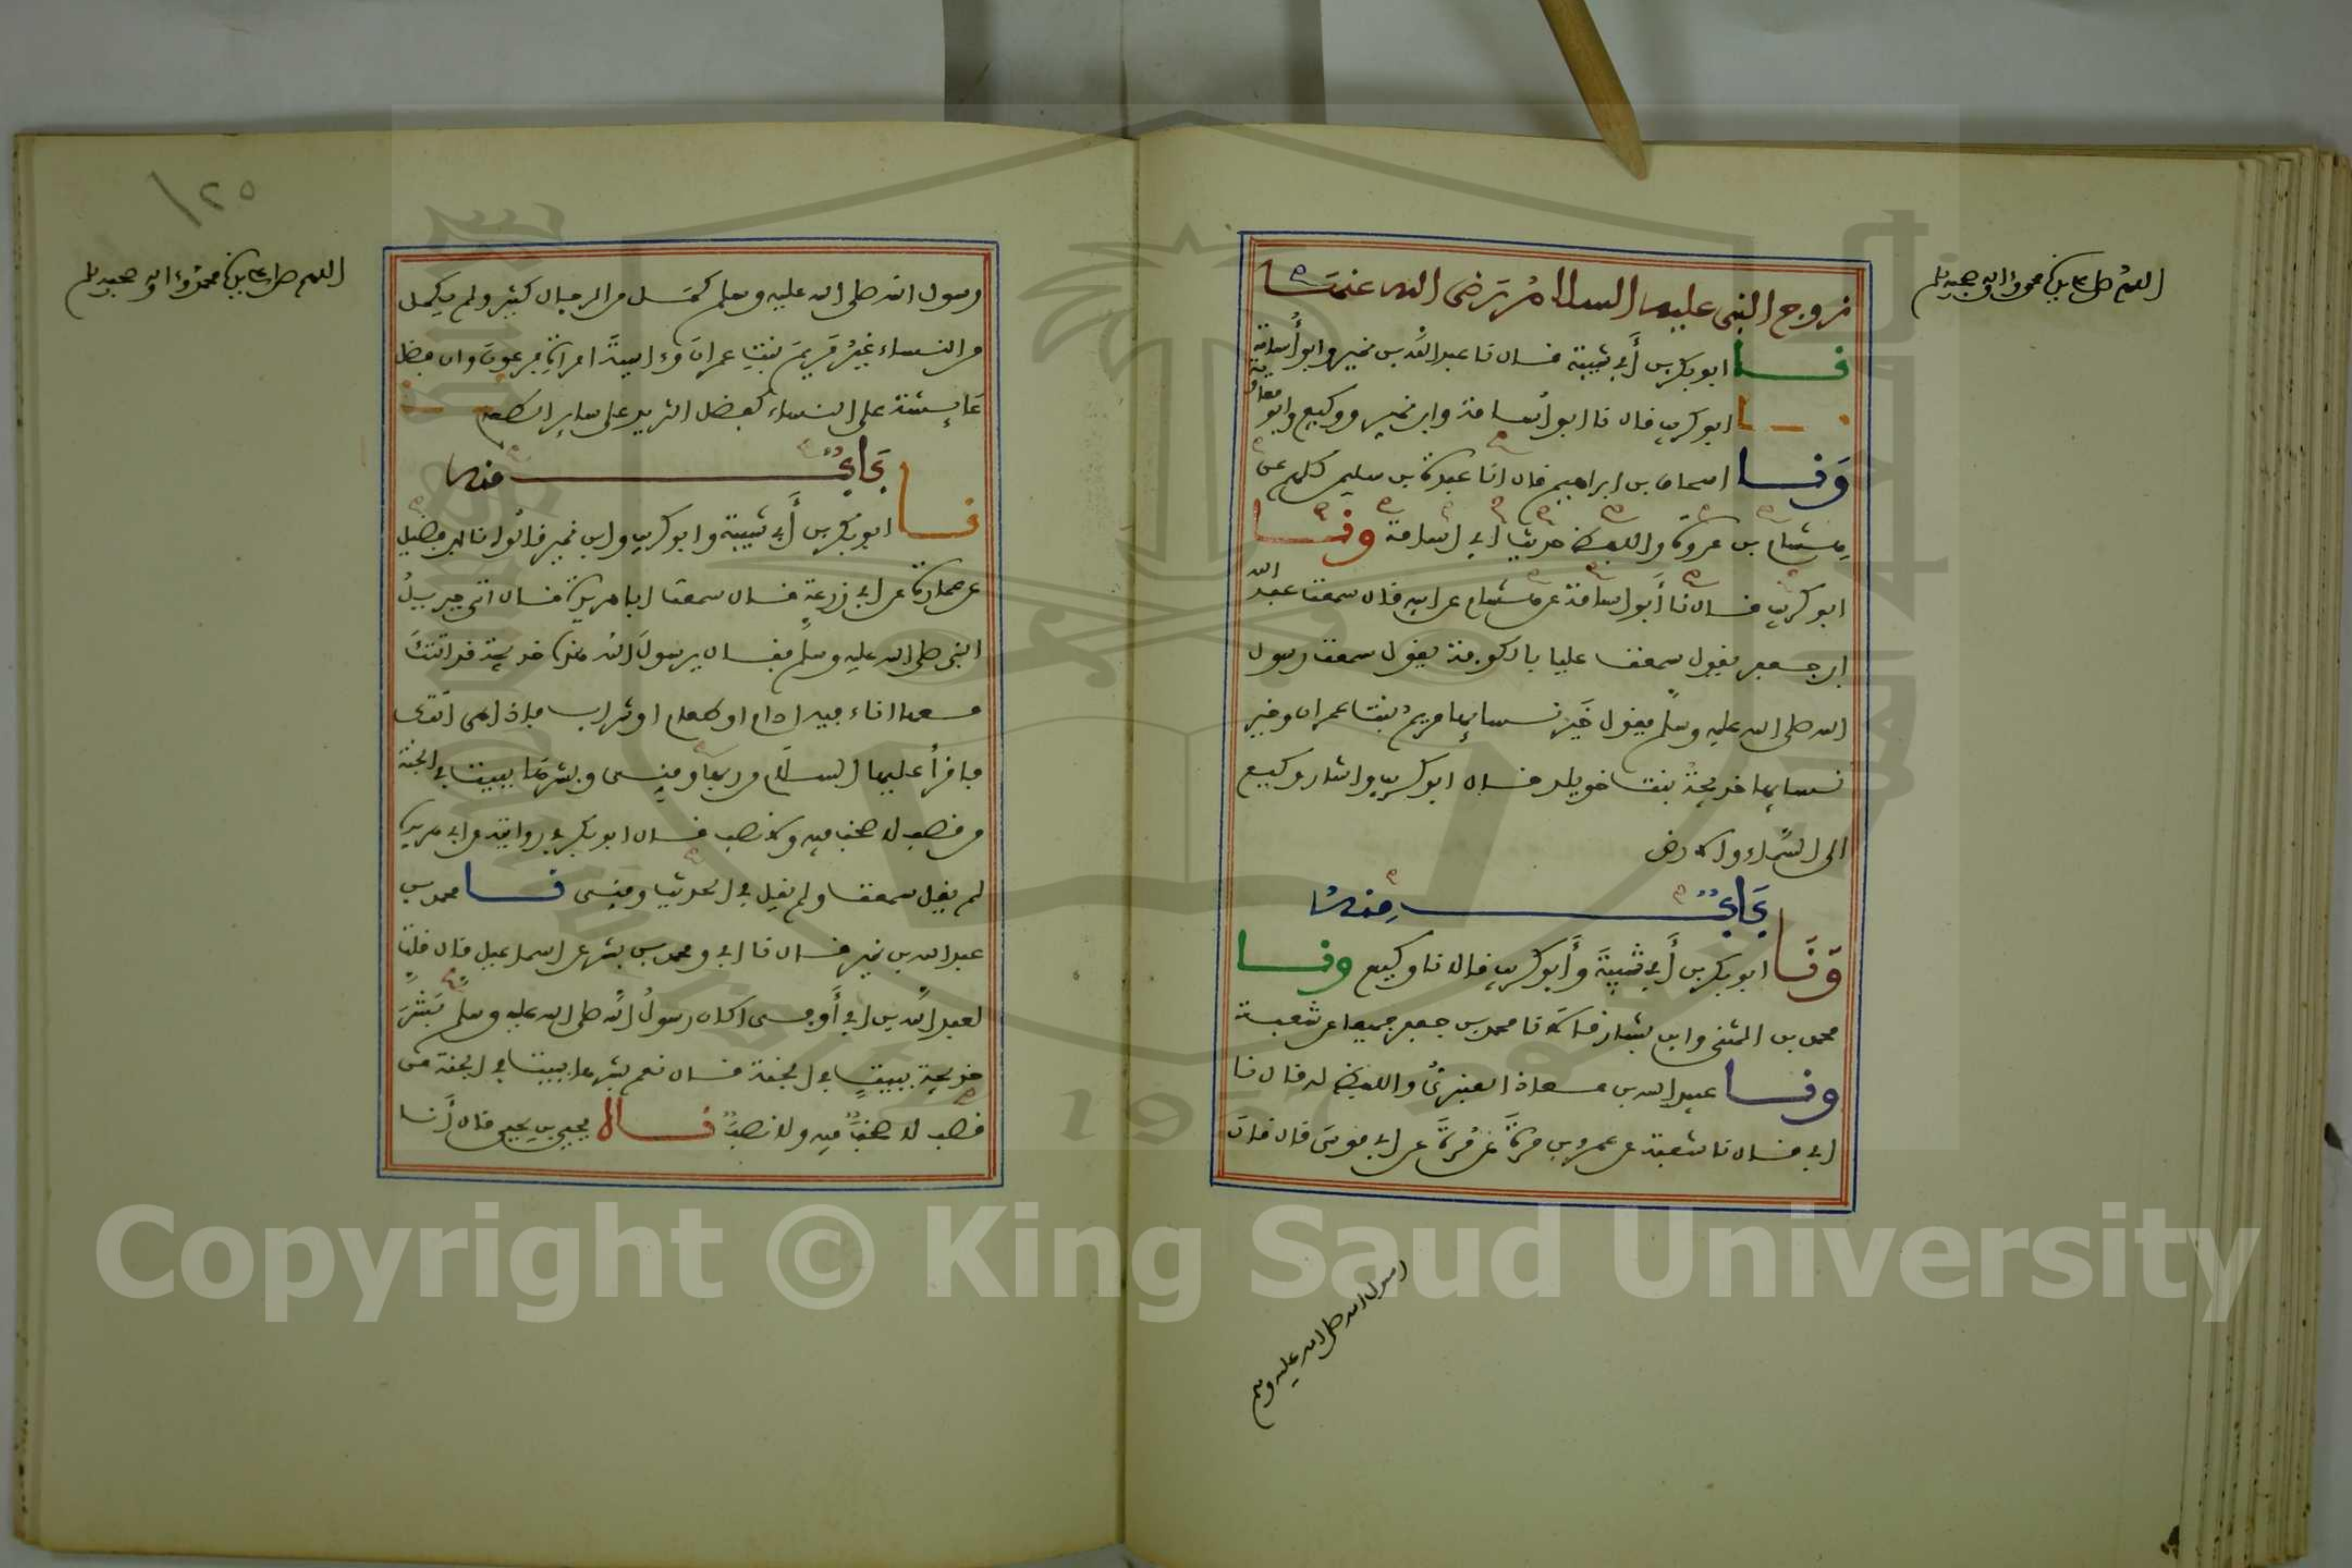 اللهم صل على نبينا محمد وءاله وصحبه وسلم
زوج النبي عليه السلام رَضى الله عنها
نا ابو بكر بن أَبي شيبة قال نا عبد الله بن نمير وابو أُسامة
نا ابو كريب قال نا ابو أُسامة وابن نمير ووكيع وابو معاوية
وَنا اسحاق بن ابراهيم قال انا عبدة بن سليمن كلهم عن
هِشام بن عروة واللفظ حديث ابي اسامة ونا
ابو كريب قال نا أَبو اسامة عن هشام عن ابيه قال سمعت عبد الله
ابن جعفر يقول سمعت عليا بالكوفة يقول سمعت رسول
الله صلى الله عليه وسلم يقول خَير نسائها مريمُ بنت عمران وخير
نسائها خديجةُ بنت خويلد قال ابو كريب واشار وكيع
الى السَّماء والارض
بَابٌ مِنهُ
وَنَا ابو بكر بن أَبي شيبَةَ وأَبو كريب قالا نا وكيع ونا
محمد بن المثنى وابن بشار قالا نا محمد بن جعفر جميعا عن شعبة
ونا عبيد الله بن معاذ العنبرىُّ واللفظ له قال نا
ابي قال نا شعبة عن عمرو بن مرةَ عَن مُرةَ عن ابي موسَى قال قال
رسول الله صلى الله عليه وسلم
١٢٥
اللهم صل على نبينا محمد وءاله وصحبه وسلم
رسول الله صلى الله عليه وسلم كمَل من الرجال كثير ولم يكمل
من النساء غيرُ مَريمَ بنتِ عمرانَ وءاسيةَ امراةِ فرعونَ وان فضل
عَايشة على النساء كفضل الثريد على ساير الطعم
بَابٌ منه
نا ابو بكر بن أَبي شيبة وابو كريب وابن نمير قالُوا نا ابن فضيل
عن عمارة عن ابي زرعةٍ قال سمعت ابا هريرة قال اتى جبريلُ
النبي صلى الله عليه وسلم فقال يرسولَ الله هذه خديجة قد اتتكَ
معها اناء فيه ادام او طعام او شراب فاذا هى اتتك
فاقرأ عليها السلام من ربها ومِنى وبشرها ببيت في الجنة
من قصب لا صخب فيه ولا نصب قال ابو بكر في روايته عن ابي هريرة
لم يقل سمعت ولم يقل في الحديث ومِنى نا محمد بن
عبد الله بن نمير قال نا ابي ومحمد بن بشر عن اسماعيل قال قلت
لعبد الله بن ابي أَوفى اكان رسولُ الله صلى الله عليه وسلم بَشرَ
خديجة ببيتٍ في الجنة قال نعم بشرها ببيت في الجنة من
قصب لا صخبٌ فيه ولا نصبٌ نا يحيى بن يحيى قال أَنا
Copyright © King Saud University